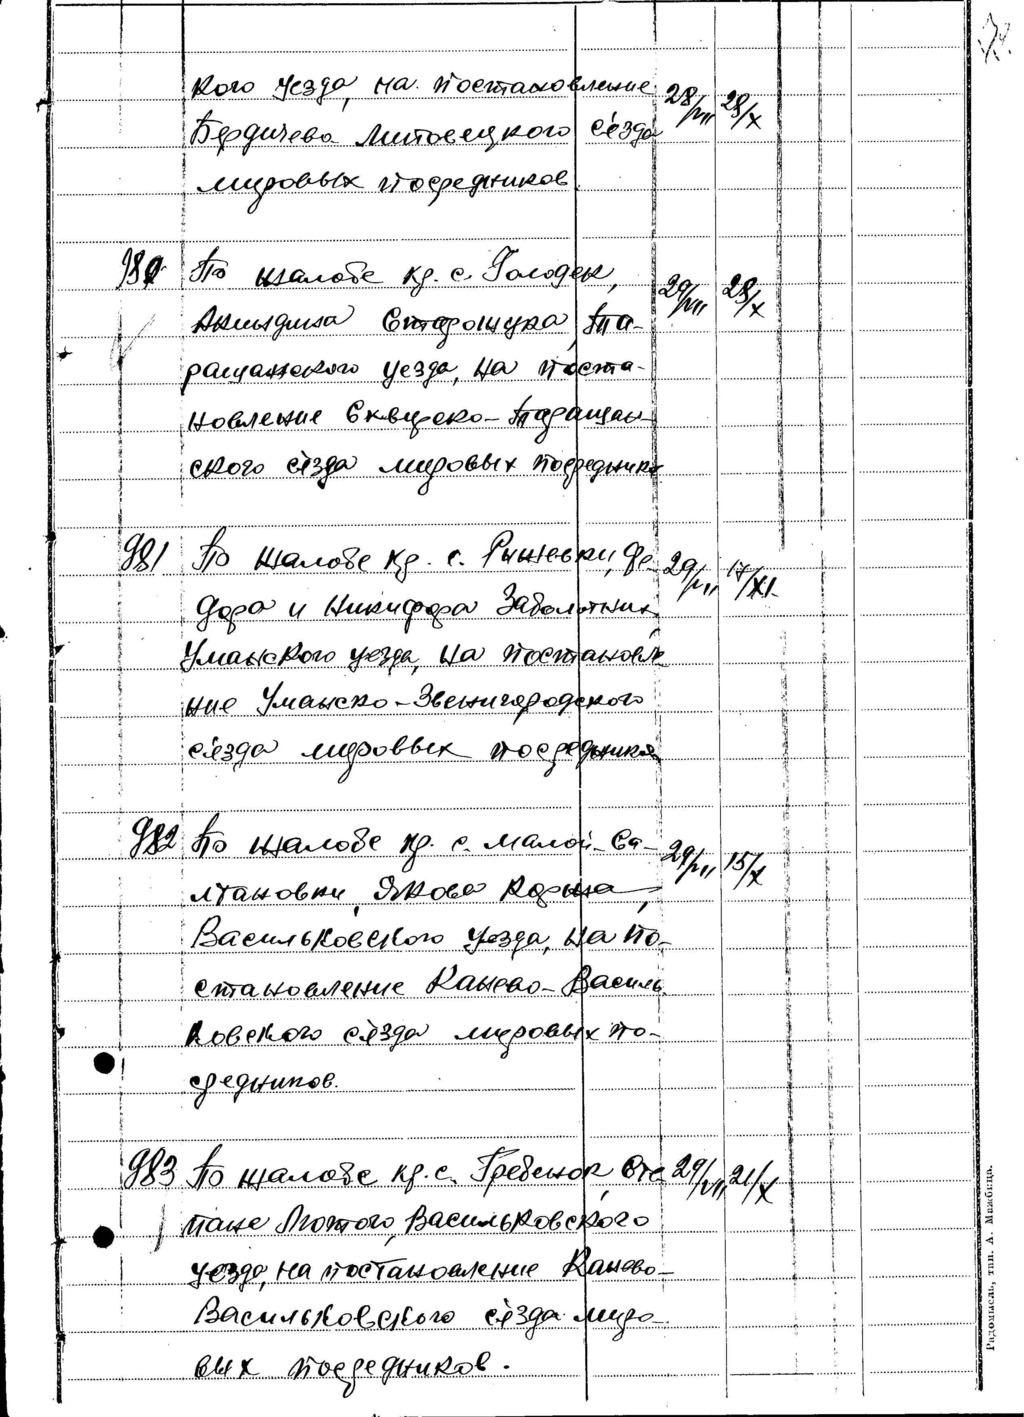 кого уезда, на постановление 28/VII 28/X
Бердичево Липовецкого съезда
мировых посредников.
980 По жалобе кр. с. Голодек, 29/VII 28/X
Акиндина Старощука, Та-
ращанского уезда, на поста-
новление Сквирско-Таращан-
ского съезда мировых посредников
981 По жалобе кр. с. Рыжевки, Фе- 29/VII 17/XI
дора и Никифора Заболотник,
Уманского уезда, на постановле
ние Уманско-Звенигородского
съезда мировых посредников
982 По жалобе кр. с. Малой-Са- 29/VII 15/X
лтановки, Якова Корына,
Васильковского уезда, на по-
становление Канево-Василь-
ковского съезда мировых по-
средников.
983 По жалобе кр. с. Гребенок, Сте 29/VII 21/X
пана Лютого, Васильковского
уезда, на постановление Канево-
Васильковского съезда миро-
вых посредников.
Радомысль, тип. А. Мижбица.